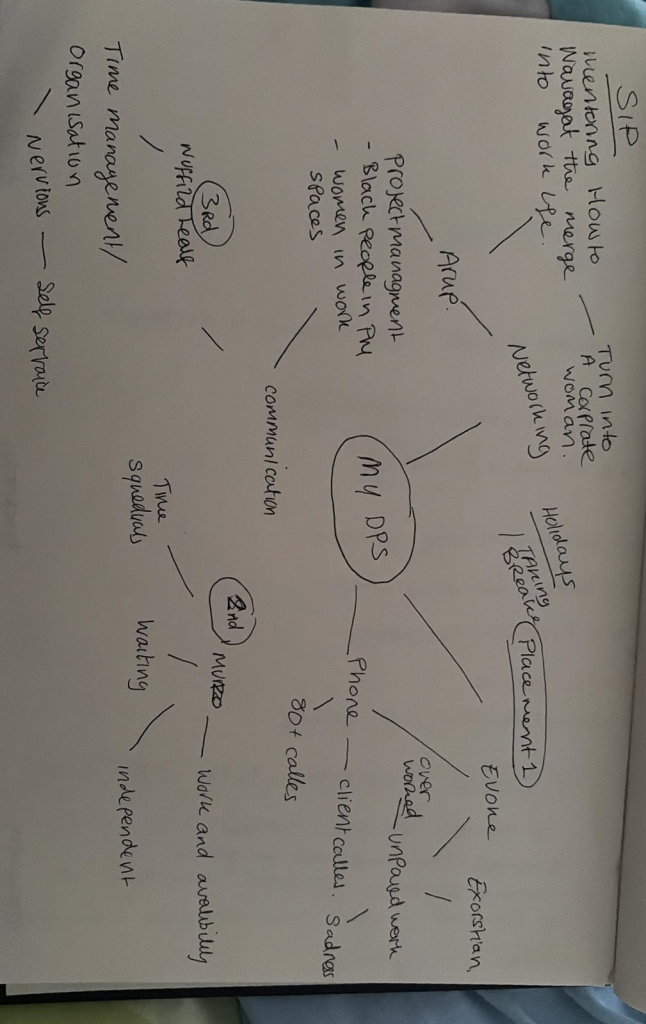 SIP
mentoring How to
Navagat the merge
into work life.
Turn into
A corprate
woman.
Networking
Arup.
project managment
- Black people in PM
- women in work
spaces
Holidays
TAKING
BREAKS
Placement 1
Evoke
Exorstian,
over
worked
unpayed work
MY DPS
Phone
client calles.
Sadness
80+ calles
communication
3rd
Time management/
organisation
Nervions
Self
2nd
Time
squedials
waiting
independent
work and avalibility